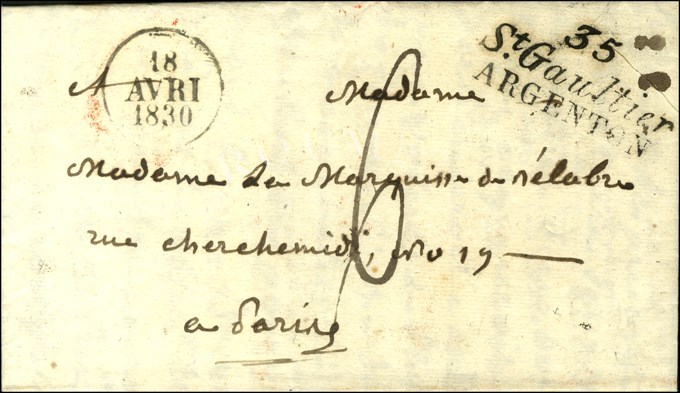 18
AVRI
1830
35
St Gaultier
ARGENTON
A Madame
Madame La Marquise de Bélabre
rue cherchemidi, nro 19
a Paris
6